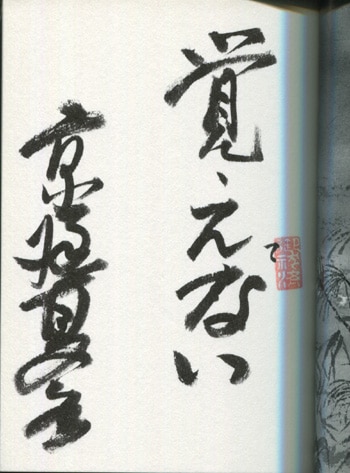 覚えない
京極夏彦